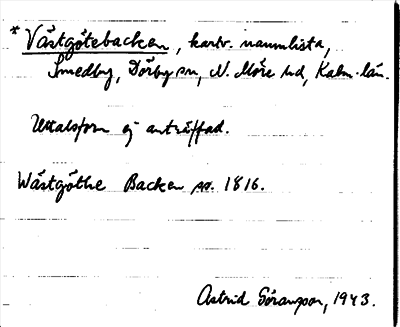 * Västgötebacken, kartv. namnlista,
Smedby, Dörby sn, N. Möre hd, Kalm. län.
Uttalsform ej anträffad.
Wästgöthe Backen 1816.
Astrid Göransson, 1943.